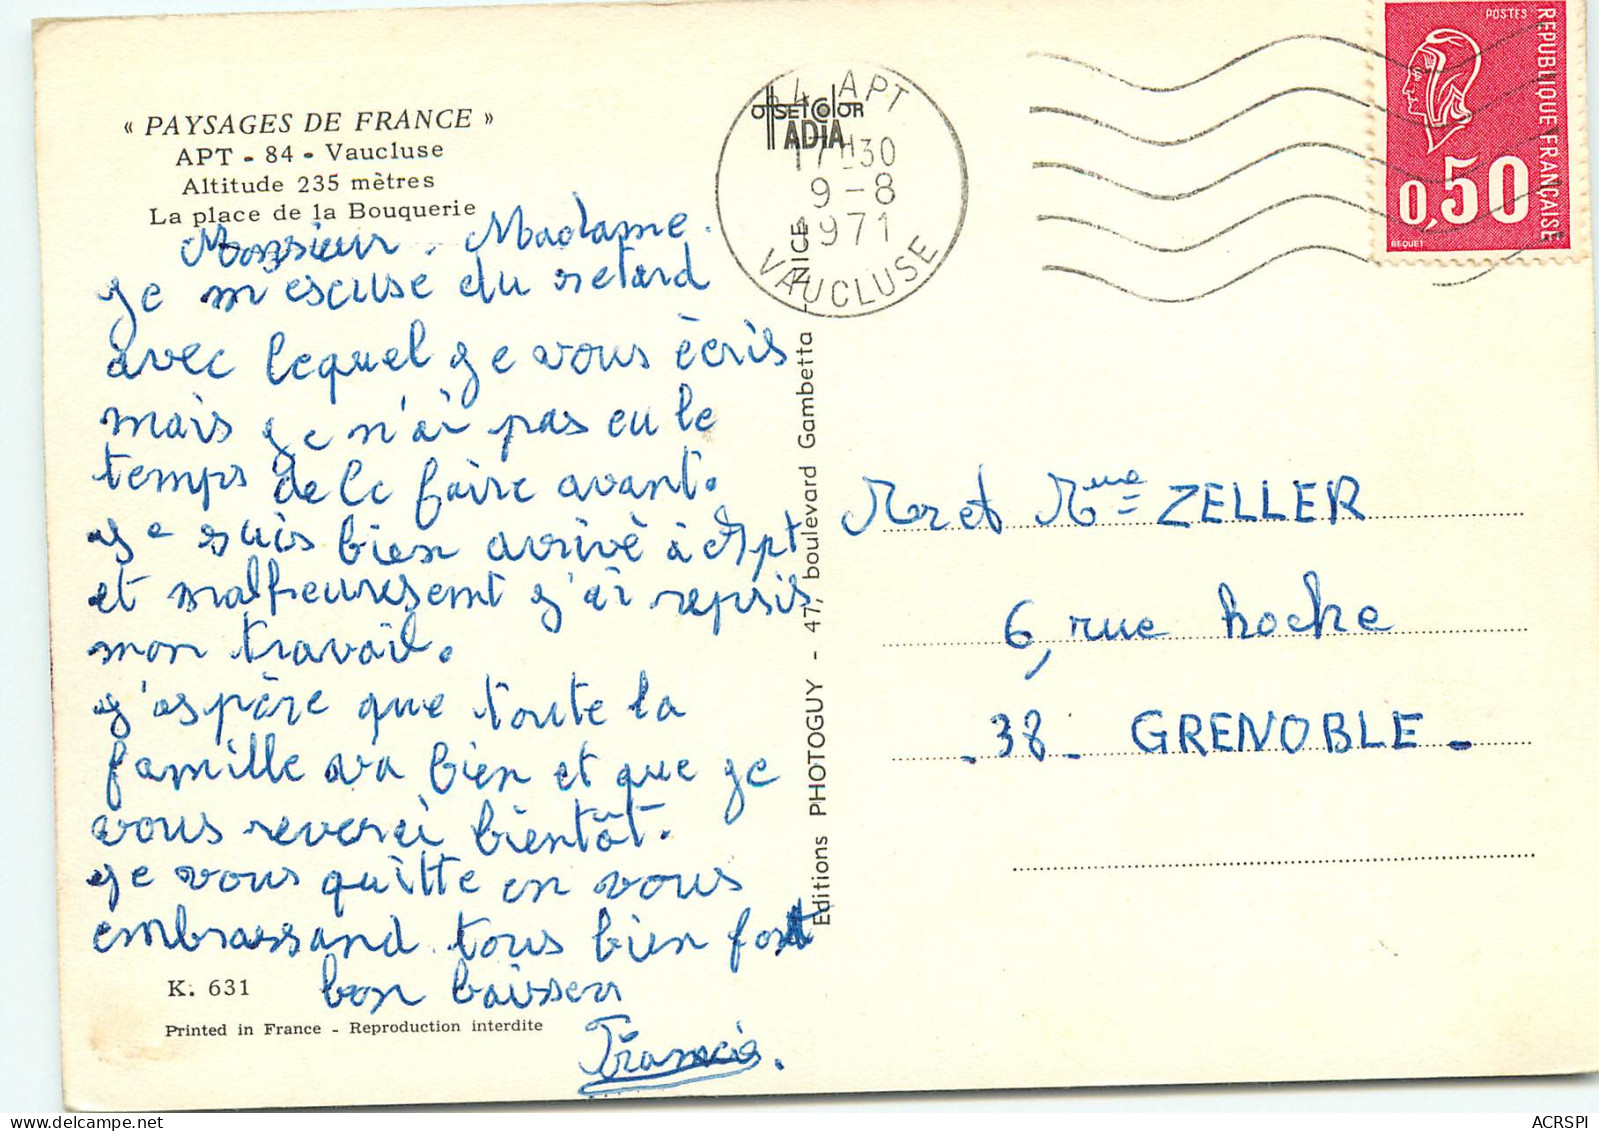 « PAYSAGES DE FRANCE »
APT - 84 - Vaucluse
Altitude 235 mètres
La place de la Bouquerie
Monsieur. Madame.
Je m'escuse du retard
avec lequel je vous écris
mais je n'ai pas eu le
temps de le faire avant.
Je suis bien arrivé à Apt
et malheuresemt j'ai repris
mon travail.
J'aspère que toute la
famille va bien et que je
vous reverai bientôt.
Je vous quitte en vous
embrassand tous bien fort
bon baisser
Francis.
K. 631
Printed in France - Reproduction interdite
OFFSET COLOR
ADIA
84 APT
17H30
9-8
1971
VAUCLUSE
Editions PHOTOGUY - 47, boulevard Gambetta - NICE
POSTES
REPUBLIQUE FRANÇAISE
0,50
BEQUET
Mr et Mme ZELLER
6, rue hoche
- 38 - GRENOBLE -
ACRSPI